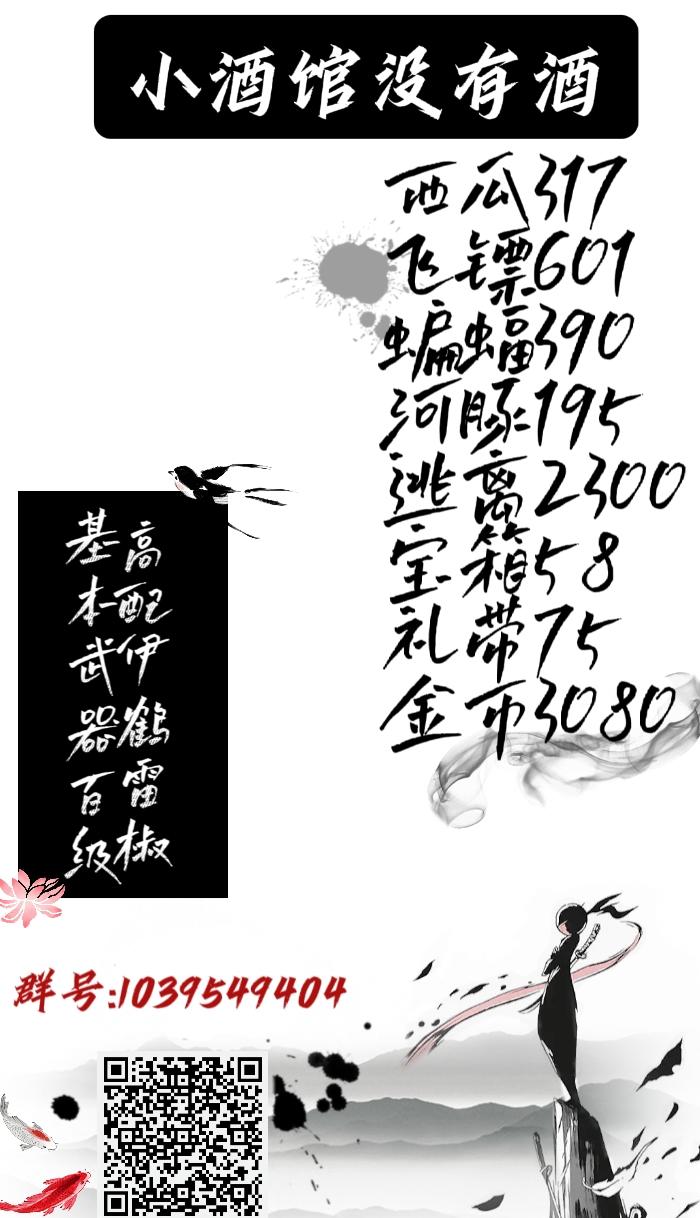 小酒馆没有酒
西瓜317
飞镖601
蝙蝠390
河豚195
逃离2300
宝箱58
礼带75
金币3080
高配伊鹤雷椒
基本武器百级
群号:1039549404